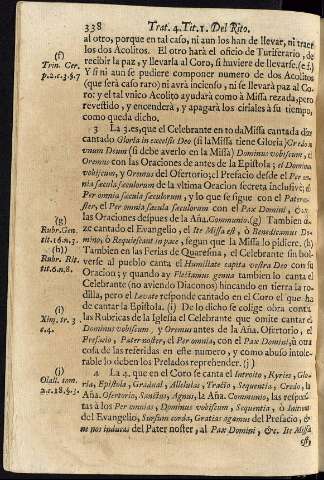 338 Trat. 4. Tit. 1. Del Rito.
al otro, porque en tal caso, ni aun los han de llevar, ni traer
los dos Acolitos. El otro harà el oficio de Turiferario, de
recibir la paz, y llevarla al Coro, si huviere de llevarse. (e f.)
Y si ni aun se pudiere componer numero de dos Acolitos
(que serà caso raro) ni avrà incienso, ni se llevarà paz al Co-
ro: y el tal vnico Acolito ayudarà como à Missa rezada, pero
revestido, y encenderà, y apagarà los ciriales à su tiempo,
como queda dicho.
(f)
Trin. Cer.
p. 2. c. 3. §. 7
3 La 3. es, que el Celebrante en toda Missa cantada dize
cantado Gloria in excelsis Deo (si la Missa tiene Gloria) Credo in
vnum Deum (si debe averlo en la Missa) Dominus vobiscum, el
Oremus con las Oraciones de antes de la Epistola; el Dominus
vobiscum, y Oremus del Ofertorio; el Prefacio desde el Per om-
nia sæcula sæculorum de la vltima Oracion secreta inclusive; el
Per omnia sæcula sæculorum, y lo que se sigue con el Pater no-
ster, el Per omnia sæcula sæculorum con el Pax Domini,
las Oraciones despues de la Aña. Communio. (g) Tambien di-
ze cantado el Evangelio, el Ite Missa est, ò Benedicamus Do-
mino, ò Requiescant in pace, segun que la Missa lo pidiere. (h)
Tambien en las Ferias de Quaresma, el Celebrante sin bol-
verse al pueblo canta el Humiliate capita vestra Deo con su
Oracion; y quando ay Flectamus genua tambien lo canta el
Celebrante (no aviendo Diaconos) hincando en tierra la ro-
dilla, pero el Levate responde cantado en el Coro el que ha
de cantar la Epistola. (i) De lo dicho se colige obra contra
las Rubricas de la Iglesia el Celebrante que omite cantar el
Dominus vobiscum, y Oremus antes de la Aña. Ofertorio, el
Prefacio, Pater noster, el Per omnia, con el Pax Domini, ù otra
cosa de las referidas en este numero, y como abuso intole-
rable lo deben los Prelados reprehender. (j)
(g)
Rubr. Gen.
tit. 16. n. 3.
(h)
Rubr. Rit.
tit. 6. n. 8.
(i)
Xim. tr. 3
c. 4.
(j)
Olall. tom.
2. c. 18. §. 3.
4 La 4. que en el Coro se canta el Introito, Kyries, Glo-
ria, Epistola, Gradual, Allelulas, Tracto, Sequentia, Credo, la
Aña. Ofertorio, Sanctus, Agnus, la Aña. Communio, las respues-
tas à los Per omnias, Dominus vobiscum, Sequentia, ò Initium
del Evangelio, Sursum corda, Gratias agamus del Prefacio, &
ne nos inducas del Pater noster, al Pax Domini, &c. Ite Missa
est,